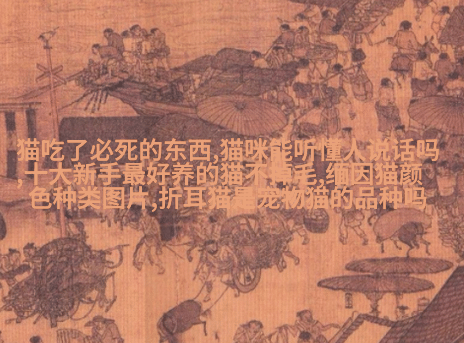 猫吃了必死的东西,猫咪能听懂人说话吗
,十大新手最好养的猫不掉毛,缅因猫颜
色种类图片,折耳猫是宠物猫的品种吗